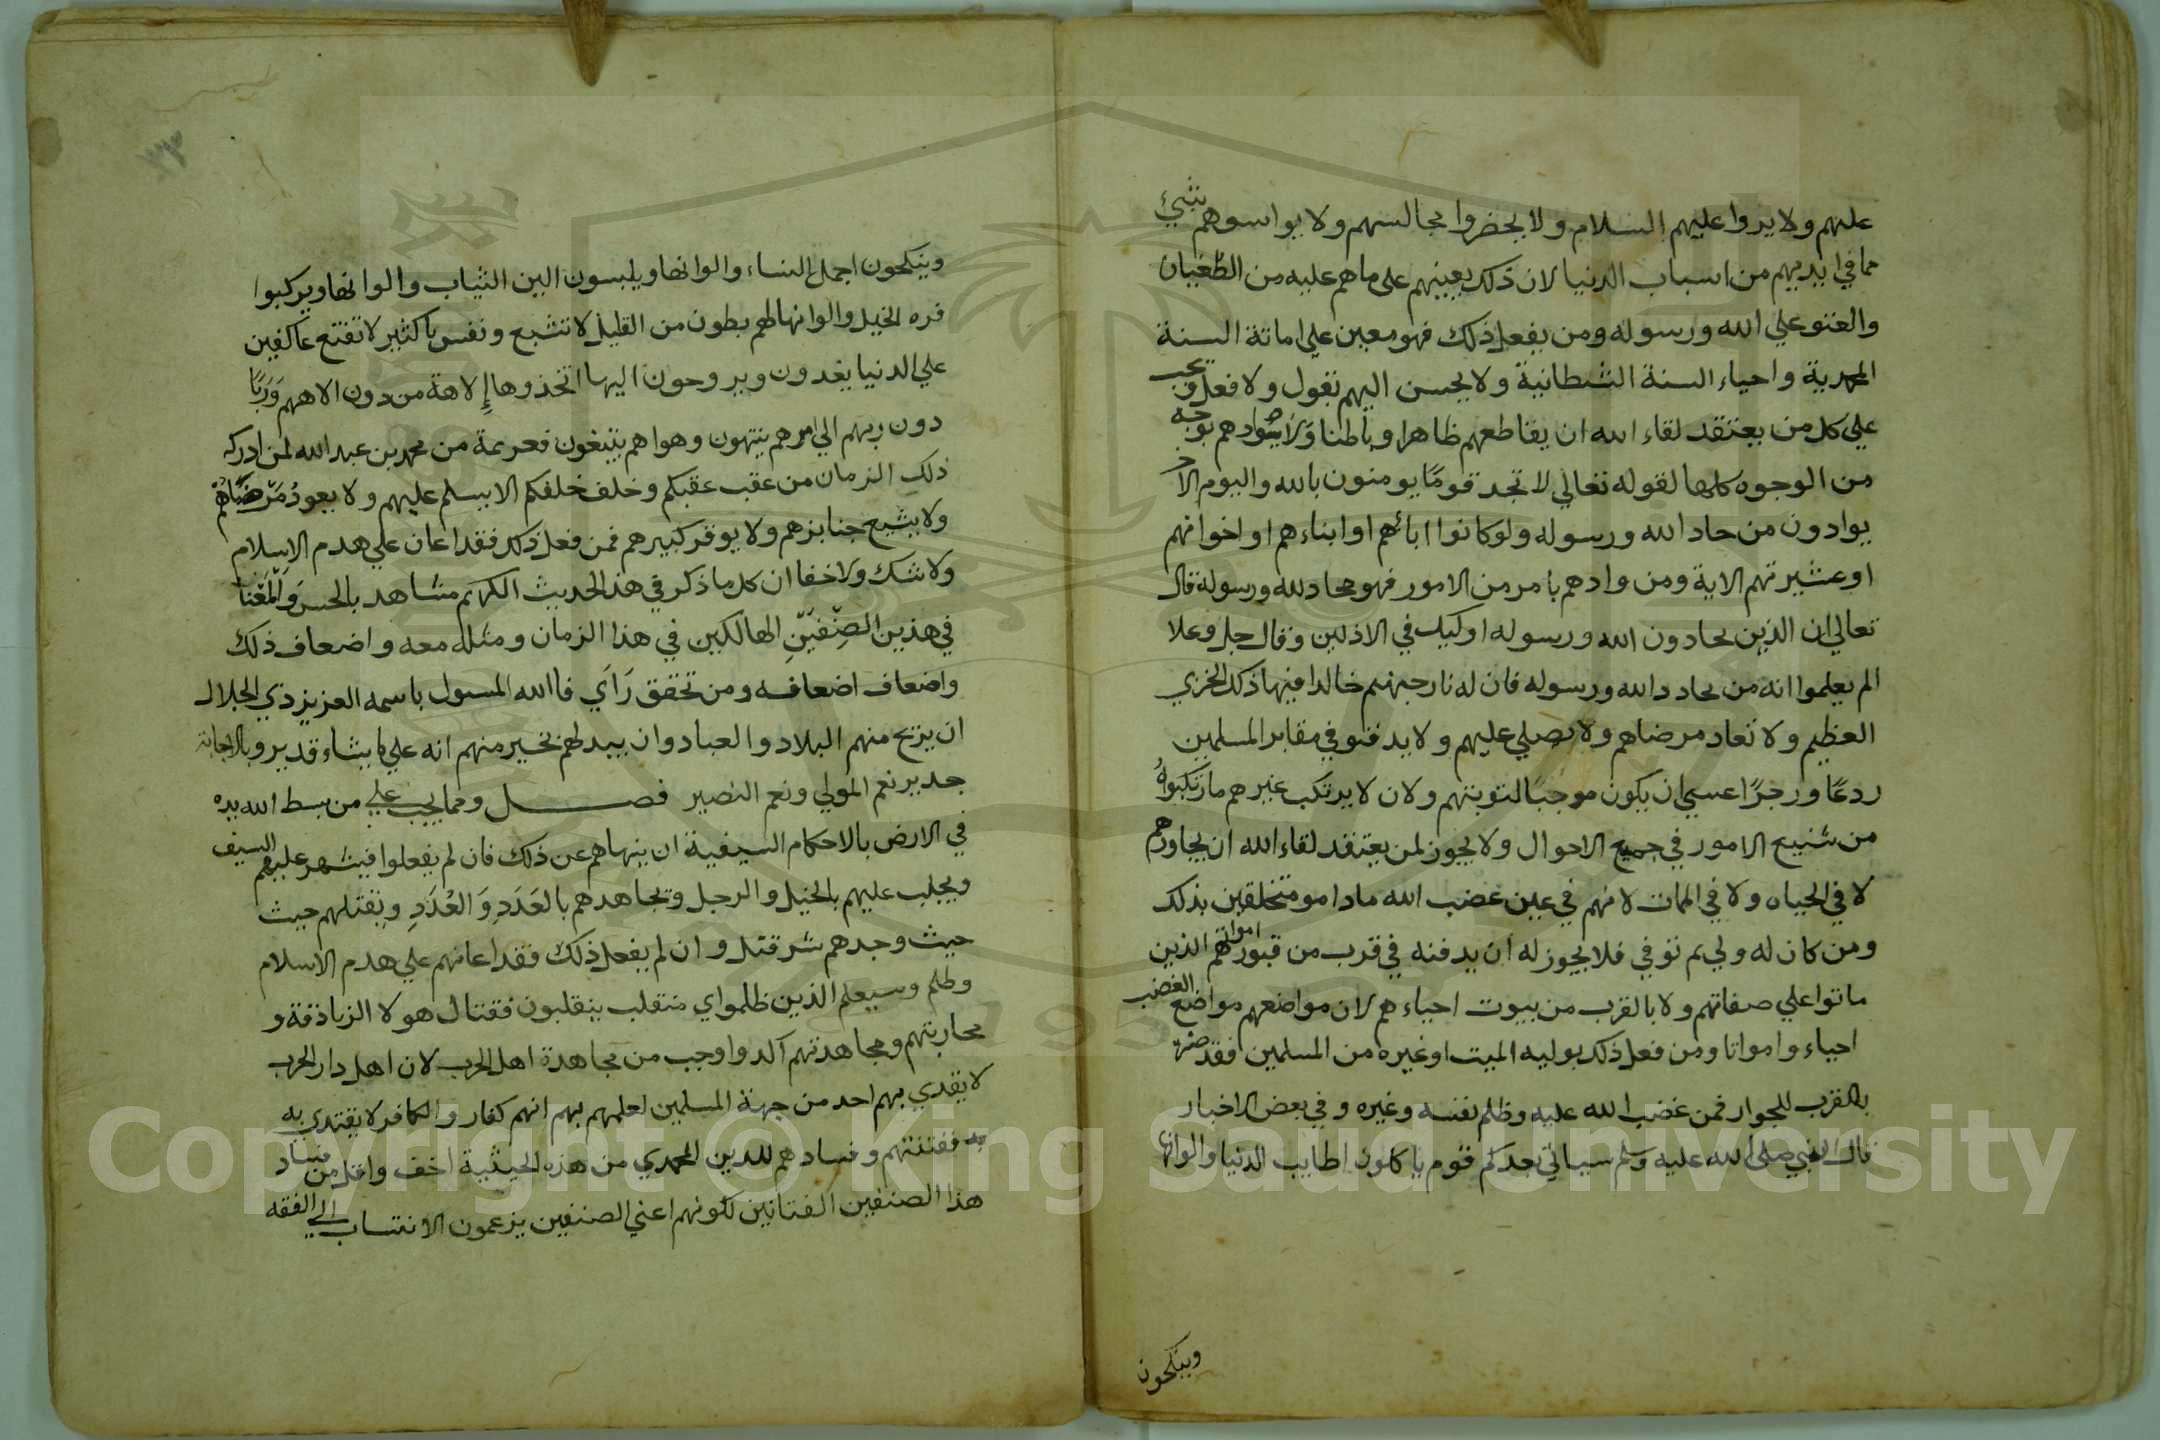 عليهم ولا يردوا عليهم السلام ولا يحضروا مجالسهم ولا يواسوهم بشيء
مما في ايديهم من اسباب الدنيا لان ذلك يعينهم على ما هم عليه من الطغيان
والعتو علي الله ورسوله ومن يفعل ذلك فهو معين علي اماتة السنة
المحمدية واحياء السنة الشيطانية ولا يحسن اليهم بقول ولا فعل ويجب
علي كل من يعتقد لقاء الله ان يقاطعهم ظاهرا وباطنا ولا يوادهم بوجه
من الوجوه كلها لقوله تعالي لا تجد قومًا يومنون بالله واليوم الاخر
يوادون من حاد الله ورسوله ولو كانوا ابائهم او ابناءهم او اخوانهم
او عشيرتهم الاية ومن وادهم بامر من الامور فهو محاد لله ورسوله قال
تعالي ان الذين يحادون الله ورسوله اوليك في الاذلين وقال جل وعلا
الم يعلموا انه من يحادد الله ورسوله فان له نار جهنم خالدا فيها ذلك الخزي
العظيم ولا تعاد مرضاهم ولا يصلي عليهم ولا يدفنو في مقابر المسلمين
ردعًا وزجرًا عسي ان يكون موجبًا لتوبتهم ولان لا يرتكب غيرهم ما ارتكبوهُ
من شنيع الامور في جميع الاحوال ولا يجوز لمن يعتقد لقاء الله ان يجاورهم
لا في الحياه ولا في الممات لانهم في عين غضب الله ما دامو متخلقين بذلك
ومن كان له ولي ثم توفي فلا يجوز له ان يدفنه في قرب من قبور امواتهم الذين
ماتوا علي صفاتهم ولا بالقرب من بيوت احياءهم لان مواضعهم مواضع الغضب
احياء وامواتا ومن فعل ذلك بوليه الميت او غيره من المسلمين فقد ضره
بالقرب للجوار فمن غضب الله عليه وظلم نفسه وغيره وفي بعض الاخبار
قال النبي صلى الله عليه وسلم سياتي بعدكم قوم ياكلون اطايب الدنيا والوانها
وينكحون
وينكحون اجمل النساء والوانها ويلبسون الين الثياب والوانها ويركبوا
فره الخيل والوانها لهم بطون من القليل لا تشبع ونفس باكثير لا تقنع عاكفين
علي الدنيا يغدون ويروحون اليها اتخذوها إلاهة من دون الاههم وَرَبًّا
دون ربهم الي امرهم ينتهون وهواهم يتبعون فعريمة من محمد بن عبد الله لمن ادركه
ذلك الزمان من عقب عقبكم وخلف خلفكم الا يسلم عليهم ولا يعودُ مرضاهم
ولا يشيع جنايزهم ولا يوقر كبيرهم فمن فعل ذلك فقد اعان علي هدم الاسلام
ولا شك ولا خفا ان كل ما ذكر في هذ الحديث الكريم مشاهد بالحس وَالْمَعْنَا
في هذين الصِّنْفَيْنِ الهالكين في هذا الزمان ومثله معه واضعاف ذلك
واضعاف اضعافه ومن تحقق رَاَي فاالله المسول باسمه العزيز ذي الجلال
ان يزيح منهم البلاد والعباد وان يبدلهم بخير منهم انه علي ما يشاء قدير وبالاجابة
جدير نعم المولي ونعم النصير فصل ومما يجب علي من بسط الله يده
في الارض بالاحكام السيفية ان ينهاهم عن ذلك فان لم يفعلوا فيشهر عليهم السيف
ويجلب عليهم بالخيل والرجل ويجاهدهم بالعَدَدِ وَالعُدَدِ ويقتلهم حيث
حيث وجدهم شر قتل وان لم يفعل ذلك فقد اعانهم علي هدم الاسلام
وظلم وسيعلم الذين ظلموا اي منقلب ينقلبون فقتال هولا الزنادقة و
محاربتهم ومجاهدتهم آكد واوجب من مجاهدة اهل الحرب لان اهل دار الحرب
لا يقتدي بهم احد من جهة المسلمين لعلمهم بهم انهم كفار والكافر لا يقتدي به
ففتنتهم وفسادهم للدين المحمدي من هذه الحيثية اخف واقل من فساد
هذا الصنفين الفتانين لكونهم اعني الصنفين يزعمون الانتساب الي الفقه